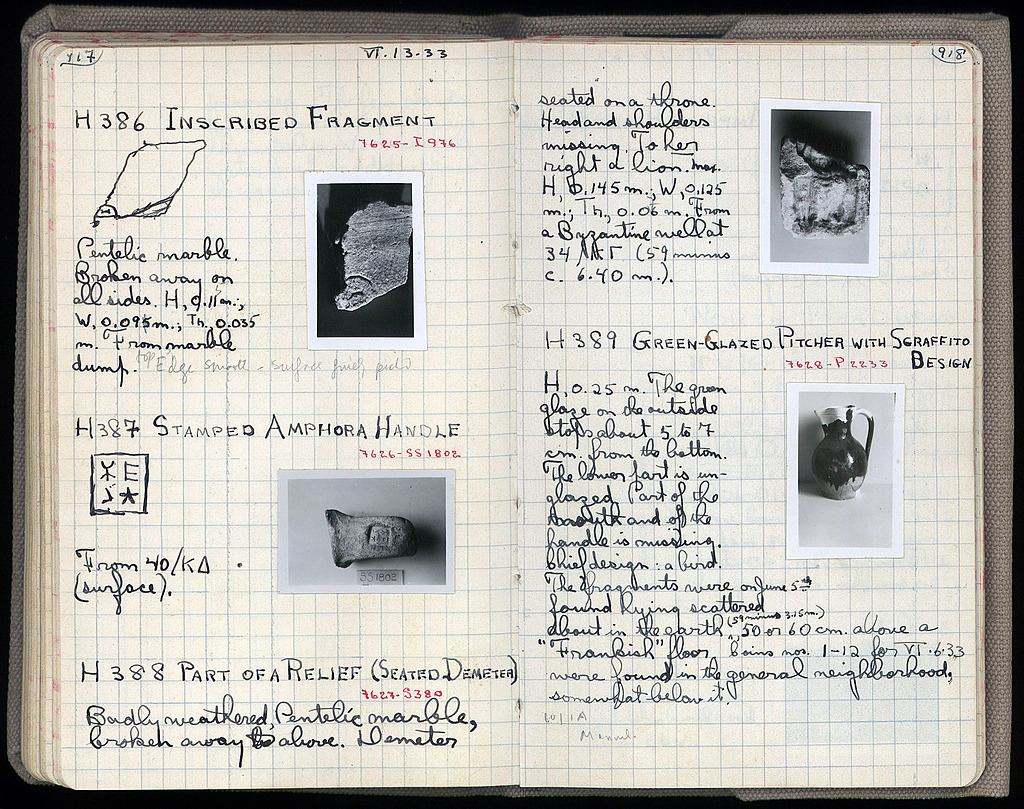 917
VI.13-33
H 386 INSCRIBED FRAGMENT
7625-I 976
Pentelic marble.
Broken away on
all sides. H, 0.11m.;
W, 0.095m.; Th, 0.035
m. From marble
dump.
Edge smooth - surface
H387 STAMPED AMPHORA HANDLE
7626-SS 1802
SS 1802
From 40/ΚΔ
(surface).
H 388 PART OF A RELIEF (SEATED DEMETER)
7627-S380
Badly weathered, Pentelic marble,
broken away above. Demeter
918
seated on a throne.
Head and shoulders
missing. To her
right a lion. Max.
H, 0.145m.; W, 0.125
m.; Th., 0.06 m. From
a Byzantine well at
34/ (59 minus
c. 6.40 m.).
H 389 GREEN-GLAZED PITCHER WITH SGRAFFITO
7628-P 2233 DESIGN
H, 0.25 m. The green
glaze on the outside
stops about 5 to 7
cm. from the bottom.
The lower part is un-
glazed. Part of the
mouth and of the
handle is missing.
Chief design: a bird.
The fragments were on June 5th
found lying scattered
(59 minus 3.15m.)
about in the earth, 50 or 60 cm. above a
"Frankish" floor. Coins nos. 1-12 for VI.6.33
were found in the general neighborhood,
somewhat below it.